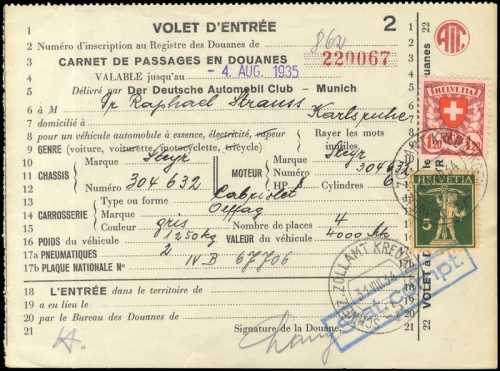 1 VOLET D'ENTRÉE 2 1
2 Numéro d'inscription au Registre des Douanes de 862 2
3 CARNET DE PASSAGES EN DOUANES 220067 3
4 VALABLE jusqu'au - 4. AUG. 1935 4
5 Délivré par Der Deutsche Automobil Club - Munich 5
6 à M Dr Raphael Strauss, Karlsruhe 6
7 domicilié à 7
8 pour un véhicule automobile à essence, électricité, vapeur Rayer les mots
9 GENRE (voiture, voiturette, motocyclette, tricycle) inutiles.
10 Marque Steyr Marque Steyr
11 CHASSIS MOTEUR Numéro 304632
12 Numéro 304 632 HP Cylindres 6
13 Type ou forme Cabriolet
14 CARROSSERIE Marque
15 Couleur gris Nombre de places 4
16 POIDS du véhicule 1250 kg VALEUR du véhicule 4000 Mk
17a PNEUMATIQUES 2
17b PLAQUE NATIONALE N° IV B 67706
18 L'ENTRÉE dans le territoire de 18
19 a eu lieu le 19
20 par le Bureau des Douanes de 20
21 Signature de la Douane. 21
22
22
AITC
HELVETIA
1.20 1.20
HELVETIA
5
SCHWEIZ. ZOLLAMT KREUZ
VOLET